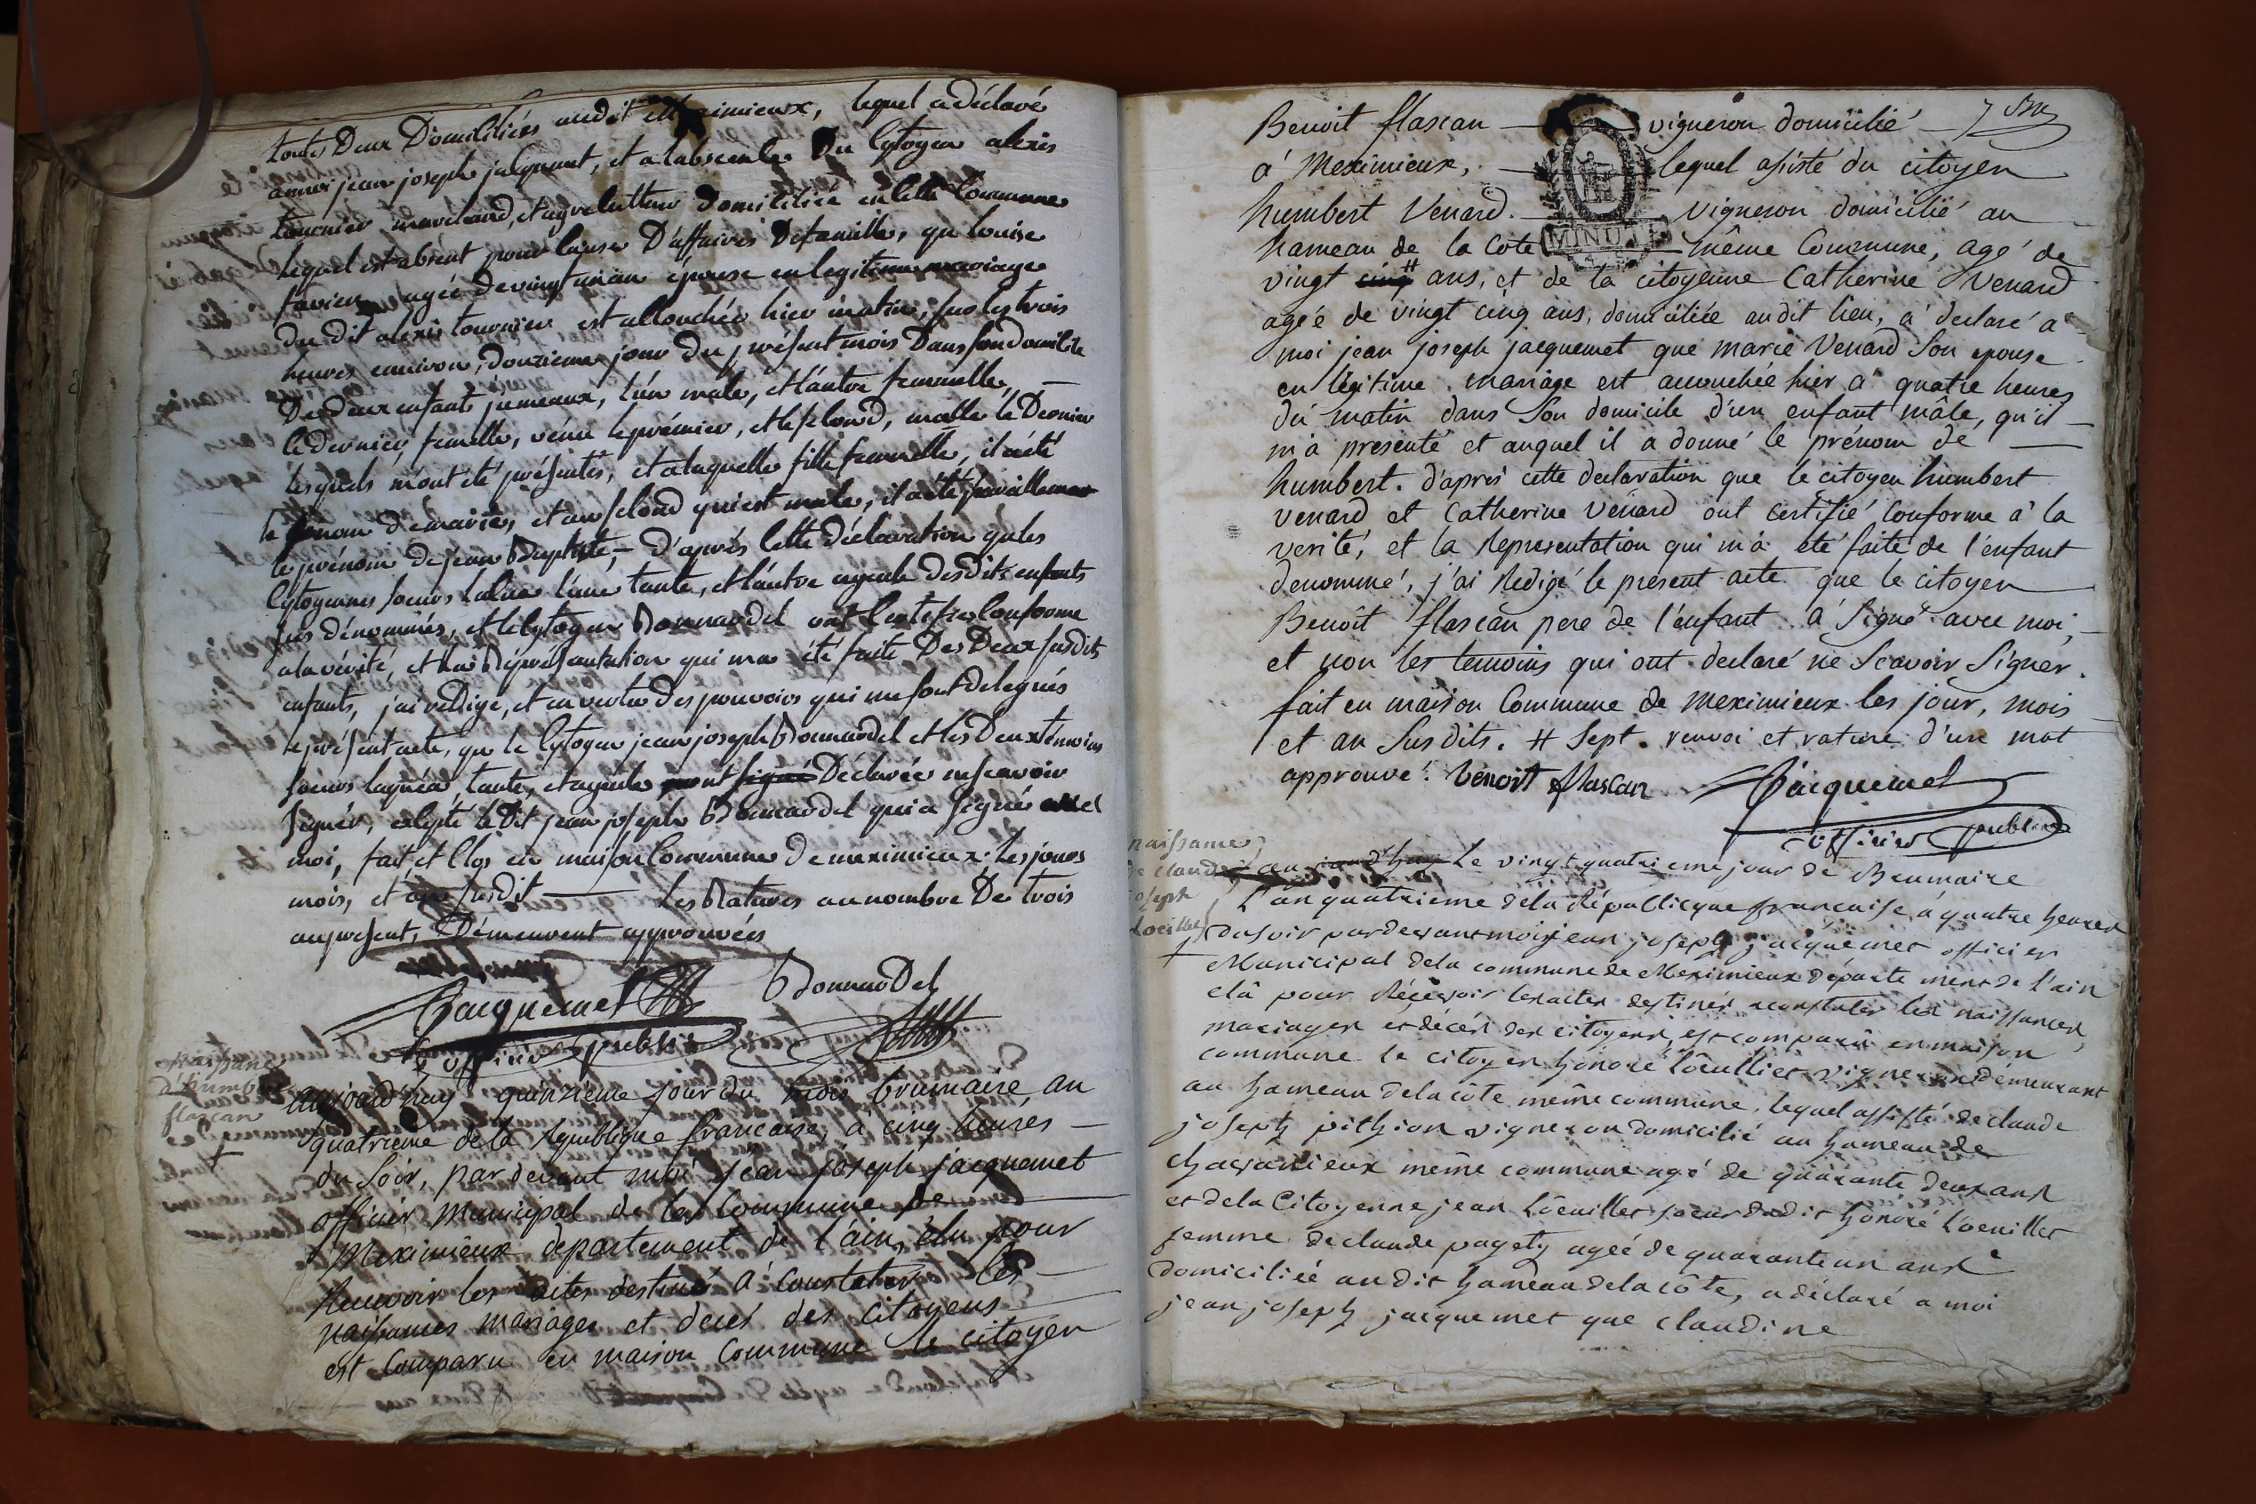 toutes Deux Domiciliées audit Meximieux, lequel a déclaré
amoi jean joseph jacquemet, et a labscence Du Cytoyen alexis
tournier marchand, et agriculteur domiciliée en cette Commune
lequel est absent pour cause D'affaires De famille, que louise
agée de vingt un an épouse en legitime mariage
du dit alexis tournier est accouchée hier matin, sur les trois
heures environ, douzieme jour du présent mois Dans son domicile
De deux enfants jumeaux, l'un male, et l'autre femmelle,
le dernier femelle, venue le prémier, et le second, malle le Dernier
lesquels m'ont été présentés, et a laquelle fille femmelle, il a été
le prénom de marie, et au second qui est male, il a été pareillement
le prénom de jean Baptiste, - d'après cette déclaration que les
Cytoyennes soeurs l'une tante, et l'autre ayeule desdits enfants
sus dénommés, et le Cytoyen Bonnardel ont Certifié Conforme
a la vérité, et la Représentation qui ma été faite Des Deux susdits
enfants, j'ai redigé, et en vertu des pouvoirs qui me sont delegués
le présent acte, que le Cytoyen jean joseph Bonnardel et les Deux témoins
soeurs tante, et ayeule ont signé Déclarée ne scavoir
signer, excepté le Dit jean joseph Bonnardel qui a signé avec
moi, fait et Clos en maison Commune de meximieux les jours
mois, et an susdit les Ratures au nombre De trois
au présent, Démeurent approuvées
Jacquemet Bonnardel
officier public
naissance
d'humbert
flascan
aujourd'huy quinzieme jour du mois brumaire, an
quatrieme de la Republique francaise, a cinq heures
du Soir, par devant moi jean joseph jacquemet
officier municipal de la Commune de
Meximieux departement de l'ain, élu pour
Recevoir les actes destinés a Constater les
naissances mariages et decés des citoyens
est Comparu en maison Commune le citoyen
Benoit flascan vigneron domicilié
a Meximieux, lequel assisté du citoyen
humbert Venard. vigneron domicilié au
hameau de la Cote même Commune, agé de
MINUTE
vingt cinq # ans, et de la citoyenne Catherine Venard
agée de vingt cinq ans, domiciliée audit lieu, a declaré a
moi jean joseph jacquemet que marie Venard Son epouse
en légitime mariage est accouchée hier a quatre heures
du matin dans Son domicile d'un enfant mâle, qu'il
m'a presenté et auquel il a donné le prénom de
humbert. d'après cette declaration que le citoyen humbert
venard et Catherine venard ont certifié Conforme a la
verité, et la Representation qui m'a été faite de l'enfant
denommé, j'ai Redigé le present acte que le citoyen
Benoit flascan pere de l'enfant a Signé avec moi,
et non les temoins qui ont declaré ne Scavoir Signer.
fait en maison Commune de meximieux les jour, mois
et an Susdits. # Sept. renvoi et rature d'un mot
approuvé. benoit flascan Jacquemet
officier public
naissance
de claude
joseph
Loeuillet
aujourd'huy Le vingt quatrieme jour de Brumaire
L'an quatrieme de la République francaise, a quatre heures
du soir par devant moi jean joseph jacquemet officier
Municipal de la commune de Meximieux departement de l'ain
élû pour Réçevoir les actes destinés a constater les naissances
mariages et décés des citoyens, est comparû en maison
commune le citoyen honoré Loeuillet vigneron démeurant
au hameau de la côte même commune, lequel assisté de claude
joseph pithion vigneron domicilié au hameau de
chavanieux même commune agé de quarante deux ans
et de la Citoyenne jean Loeuillet soeur dudit honoré Loeuillet
femme de claude pagety agée de quarante un ans
domiciliée audit hameau de la côte, a déclaré a moi
jean joseph jacquemet que claudine